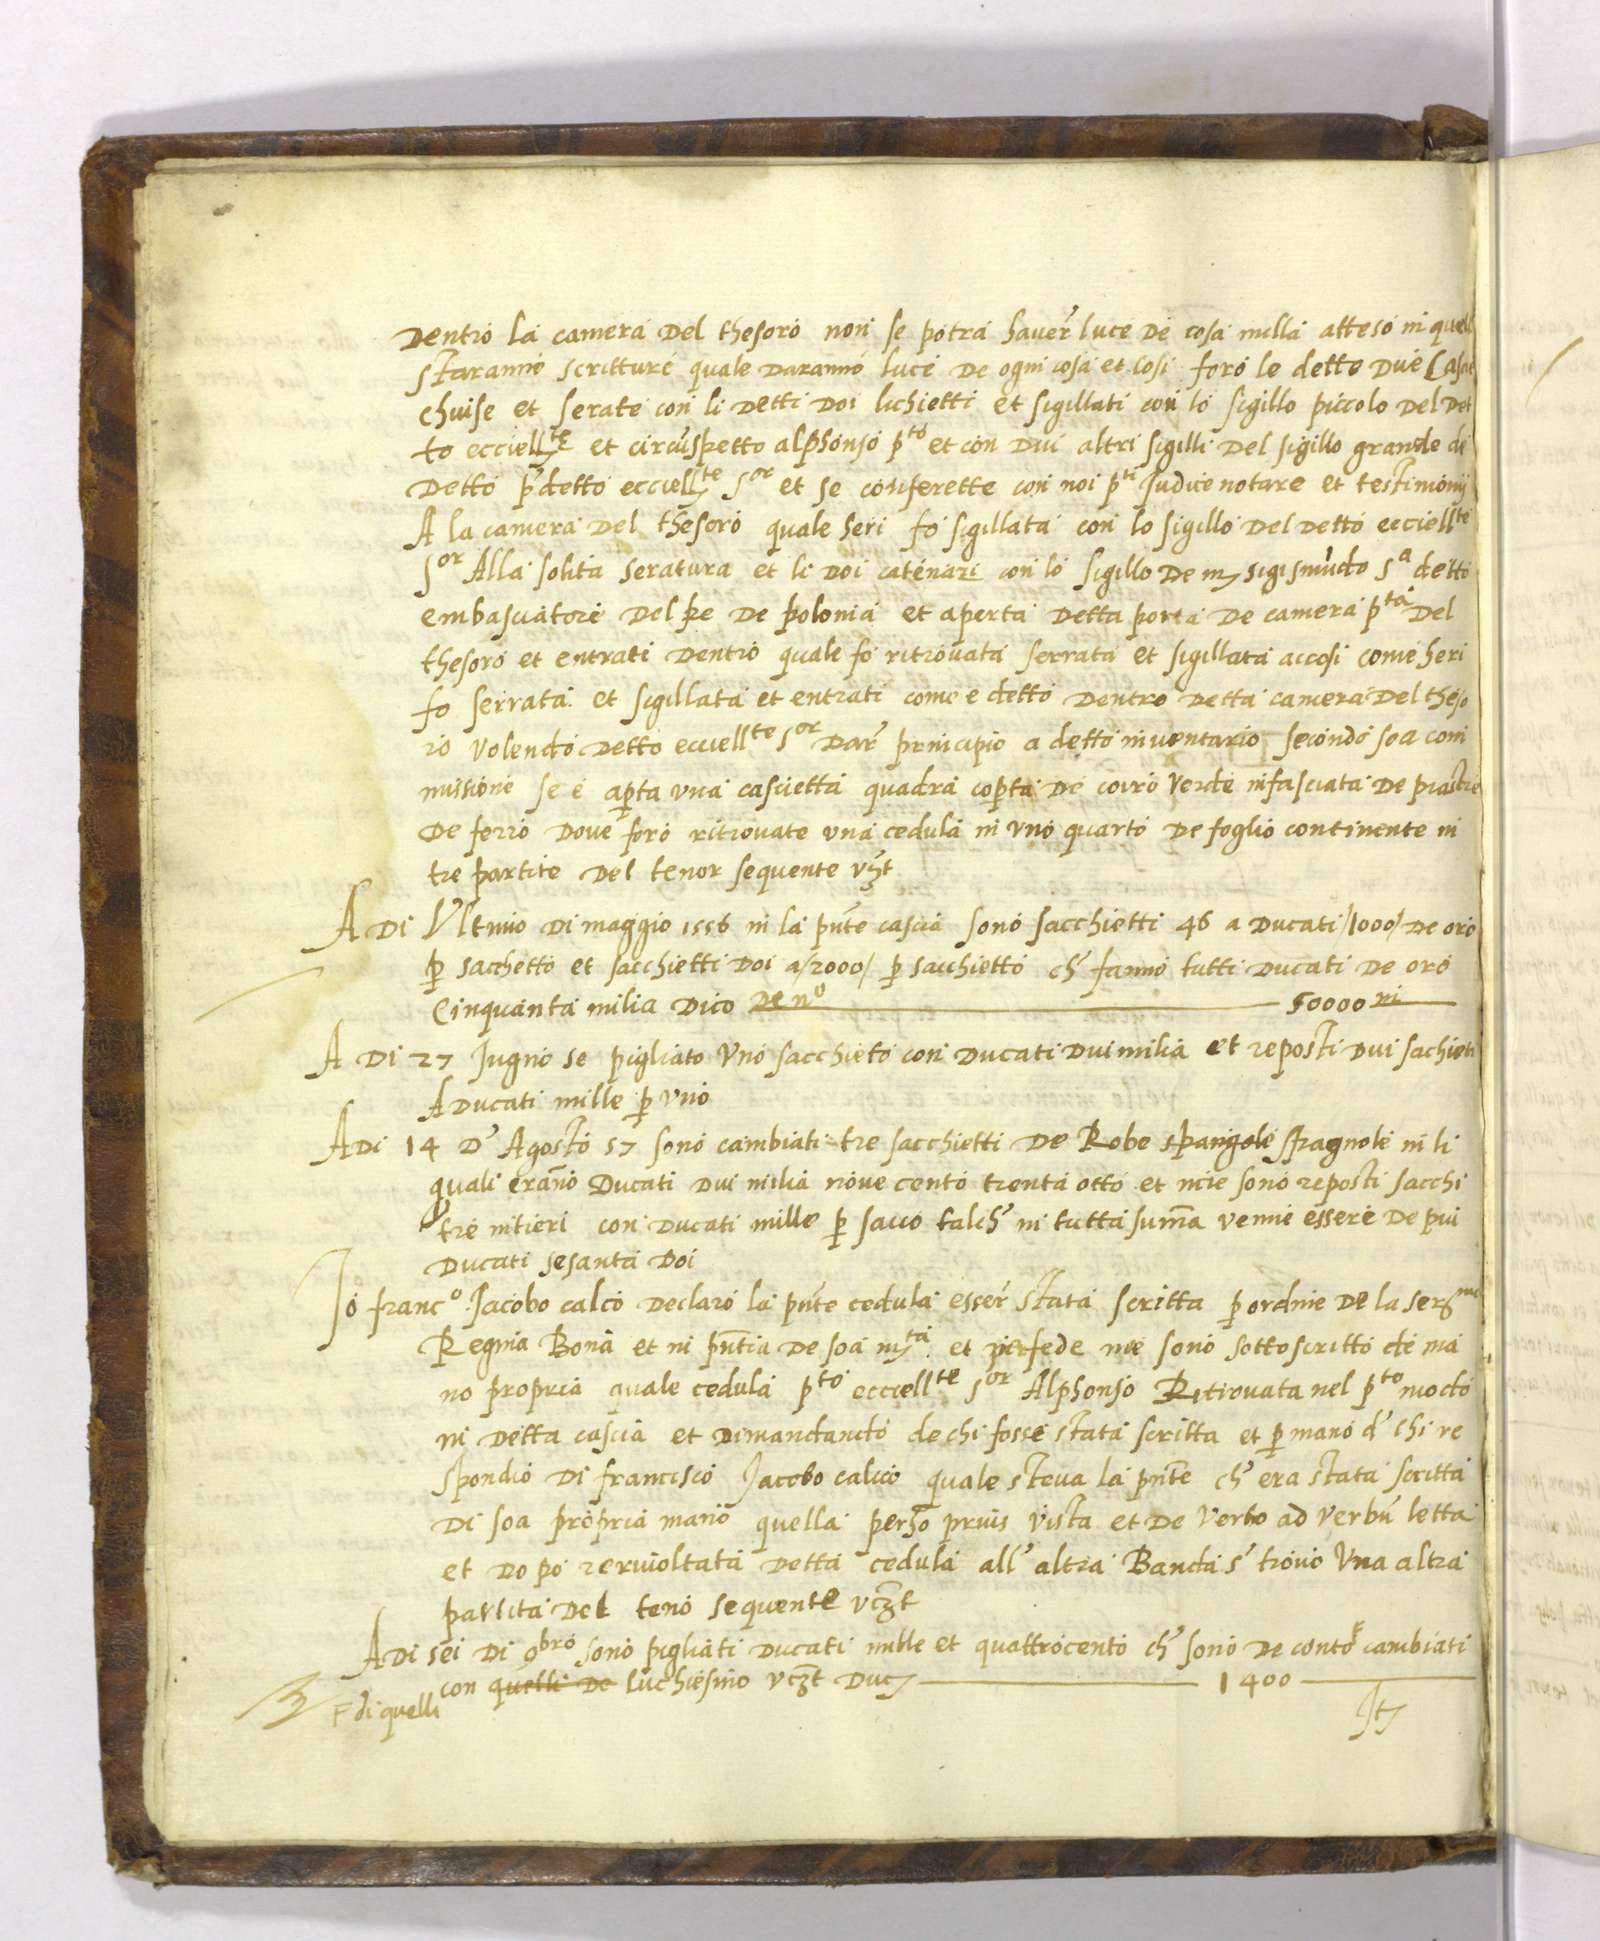 Dentro la camera del thesoro non se potra haver luce de cosa nulla atteso in quell
staranno scritture quale daranno luce de ogni cosa et cosi foro le dette due Casse
chuise et serate con li detti doi luchietti et sigillati con lo sigillo piccolo del det
to ecciell.te et circuspetto alphonso p.to et con dui altri sigilli del sigillo grande di
detto p.detto eccell.te S.or et se conferette con noi p.ti Judice notare et testimonij
A la camera del thesoro quale heri fo sigillata con lo sigillo del detto ecciell.te
S.or Alla solita seratura et li doi catenazi con lo sigillo de m. sigismudo S.a detto
embasciatore del Re de polonia et aperta detta porta de camera p.ta del
thesoro et entrati dentro quale fo ritrovata serrata et sigillata accosi come heri
fo serrata et sigillata et entrati come e detto dentro detta camera del theso
ro volendo detto eccell.te S.or dar principio a detto inventario secondo soa com
missione se e aperta una cascietta quadra coperta de coiro verde infasciata de piastre
de ferro dove foro ritrovate una cedula in uno quarto de foglio continente in
tre partite del tenor sequente vzt
A di Ultimo di maggio 1556 in la pnte cascia sono sacchietti 46 a ducati /1000/ de oro
p sacchetto et sacchietti doi a /2000/ p sacchietto ch fanno tutti ducati de oro
Cinquanta milia dico de n.o 50000 ni
A di 27 Jugno se pigliato uno sacchieto con ducati dui milia et reposti dui sachieti
A ducati mille p uno
A di 14 d' Agosto 57 sono cambiati tre sacchietti de Robe spangole spagnole in li
quali erano ducati dui milia nove cento trenta otto et ncie sono reposti sacchi
tre intieri con ducati mille p sacco talch in tutta summa venne essere de piu
ducati sesanta doi
Io franc.o Jacobo calco declaro la pnte cedula esser stata scritta p ordine de la ser.ma
Regina Bona et in pntia de soa m.ta et p fede me sono sottoscritto de ma
no propria quale cedula p.to eccell.te S.or Alphonso Ritrovata nel p.to modo
in detta cascia et dimandando de chi fosse stata scritta et p mano d' chi re
spondio di francisco Jacobo calco quale steva la pnte ch era stata scritta
di soa propria mano quella perho prius vista et de verbo ad verbu letta
et do po rervioltata detta cedula all' altra Banda s' trovo una altra
partita del teno sequente vczt
A di sei di 9bro sono pigliati ducati mille et quattrocento ch sono de conto cambiati
con quelli de luchiesino vczt duc. 1400
F di quelli
It.